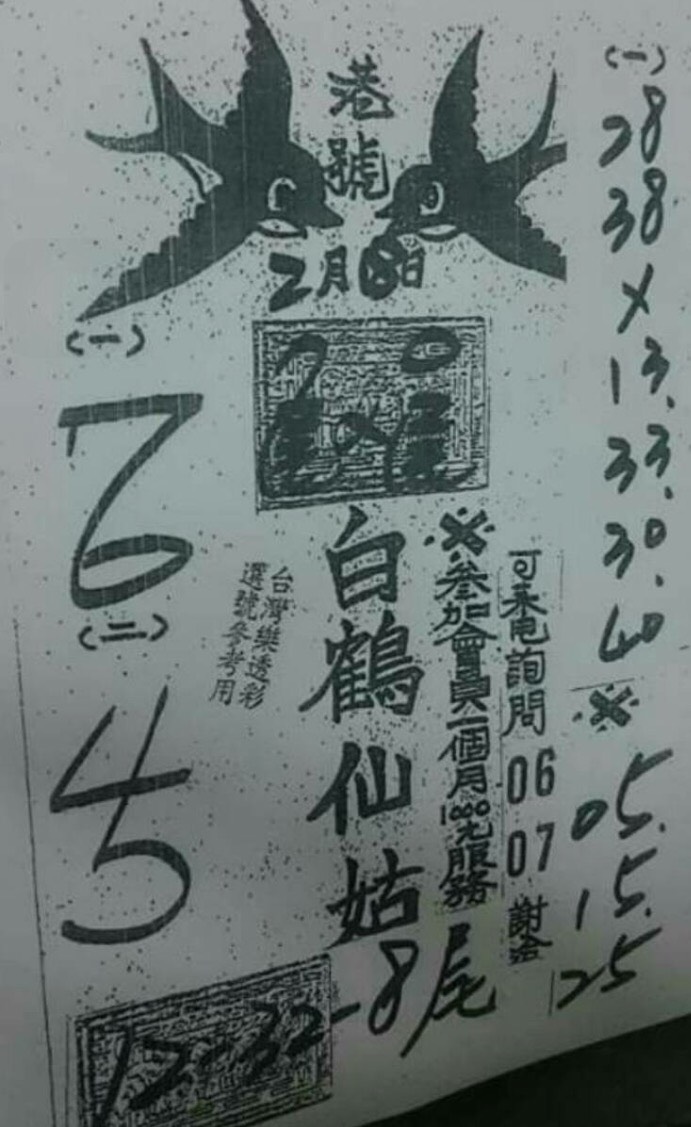 港號
2月18日
(一)
28
38
×
13.
33.
30.
40
※
05.
15.
25
可來电詢問 06 07 謝洽
※參加會員一個月1000元服務
白鶴仙姑
台灣樂透彩
選號參考用
(一)
7
6
(二)
4
5
12-32-8尾